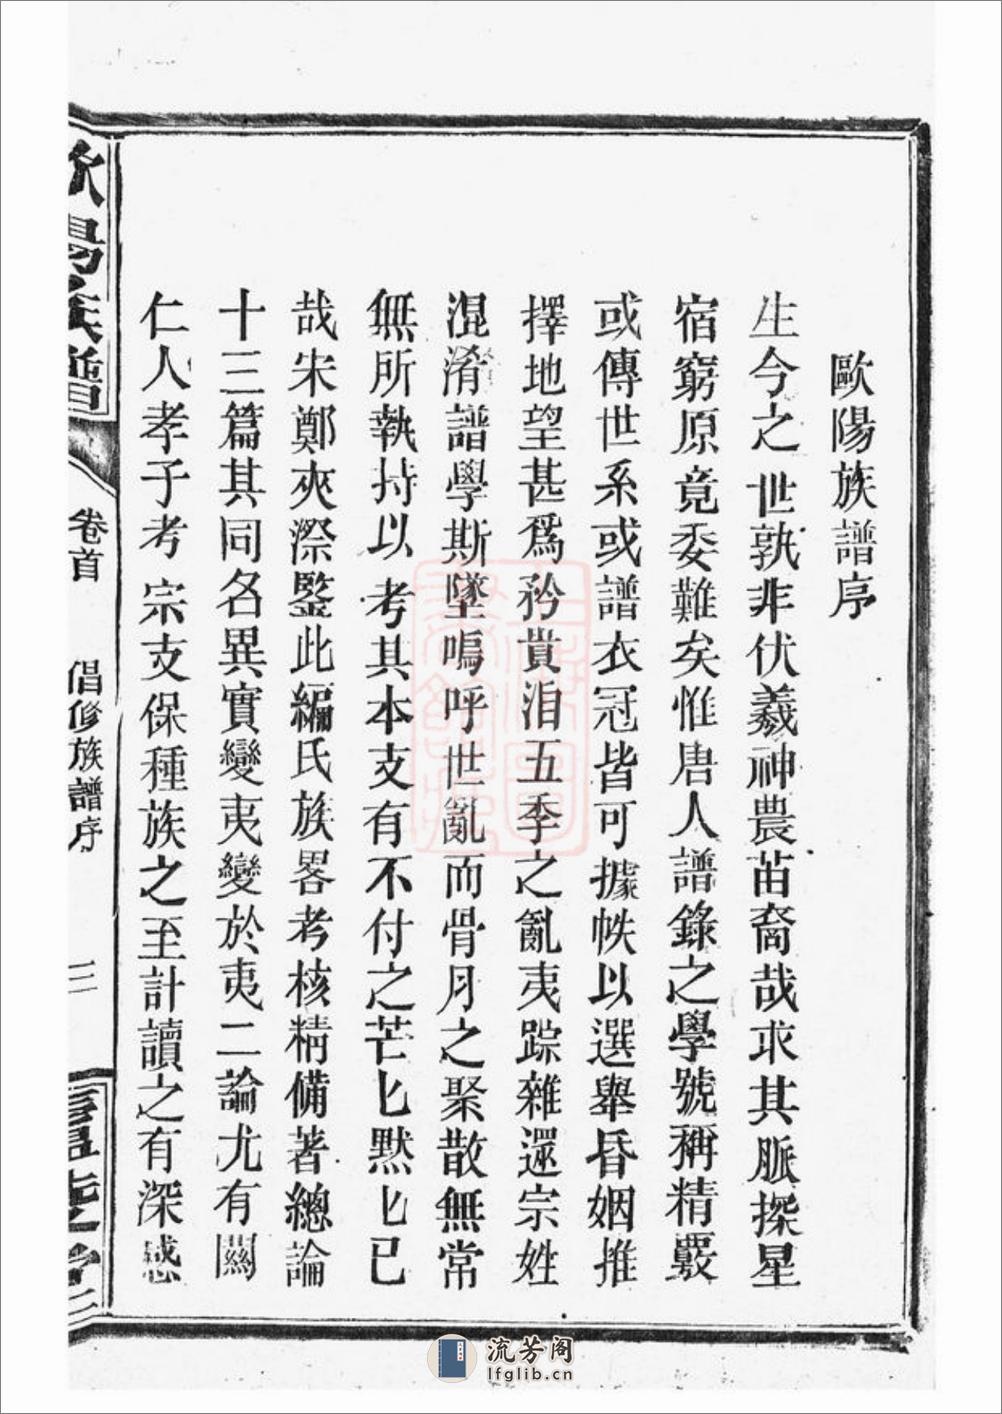 歐陽族譜序
生今之世孰非伏羲神農苗裔哉求其脈探星
宿窮原竟委難矣惟唐人譜錄之學號稱精覈
或傳世系或譜衣冠皆可據帙以選舉昏姻推
擇地望甚爲矜貴洎五季之亂夷踪雜還宗姓
混淆譜學斯墜嗚呼世亂而骨月之聚散無常
無所執持以考其本支有不付之芒匕默匕已
哉宋鄭夾漈鑒此編氏族畧考核精備著總論
十三篇其同名異實變夷變於夷二論尤有關
仁人孝子考宗支保種族之至計讀之有深感
歐陽族譜
卷首
倡修族譜序
三
流芳阁
lfglib.cn